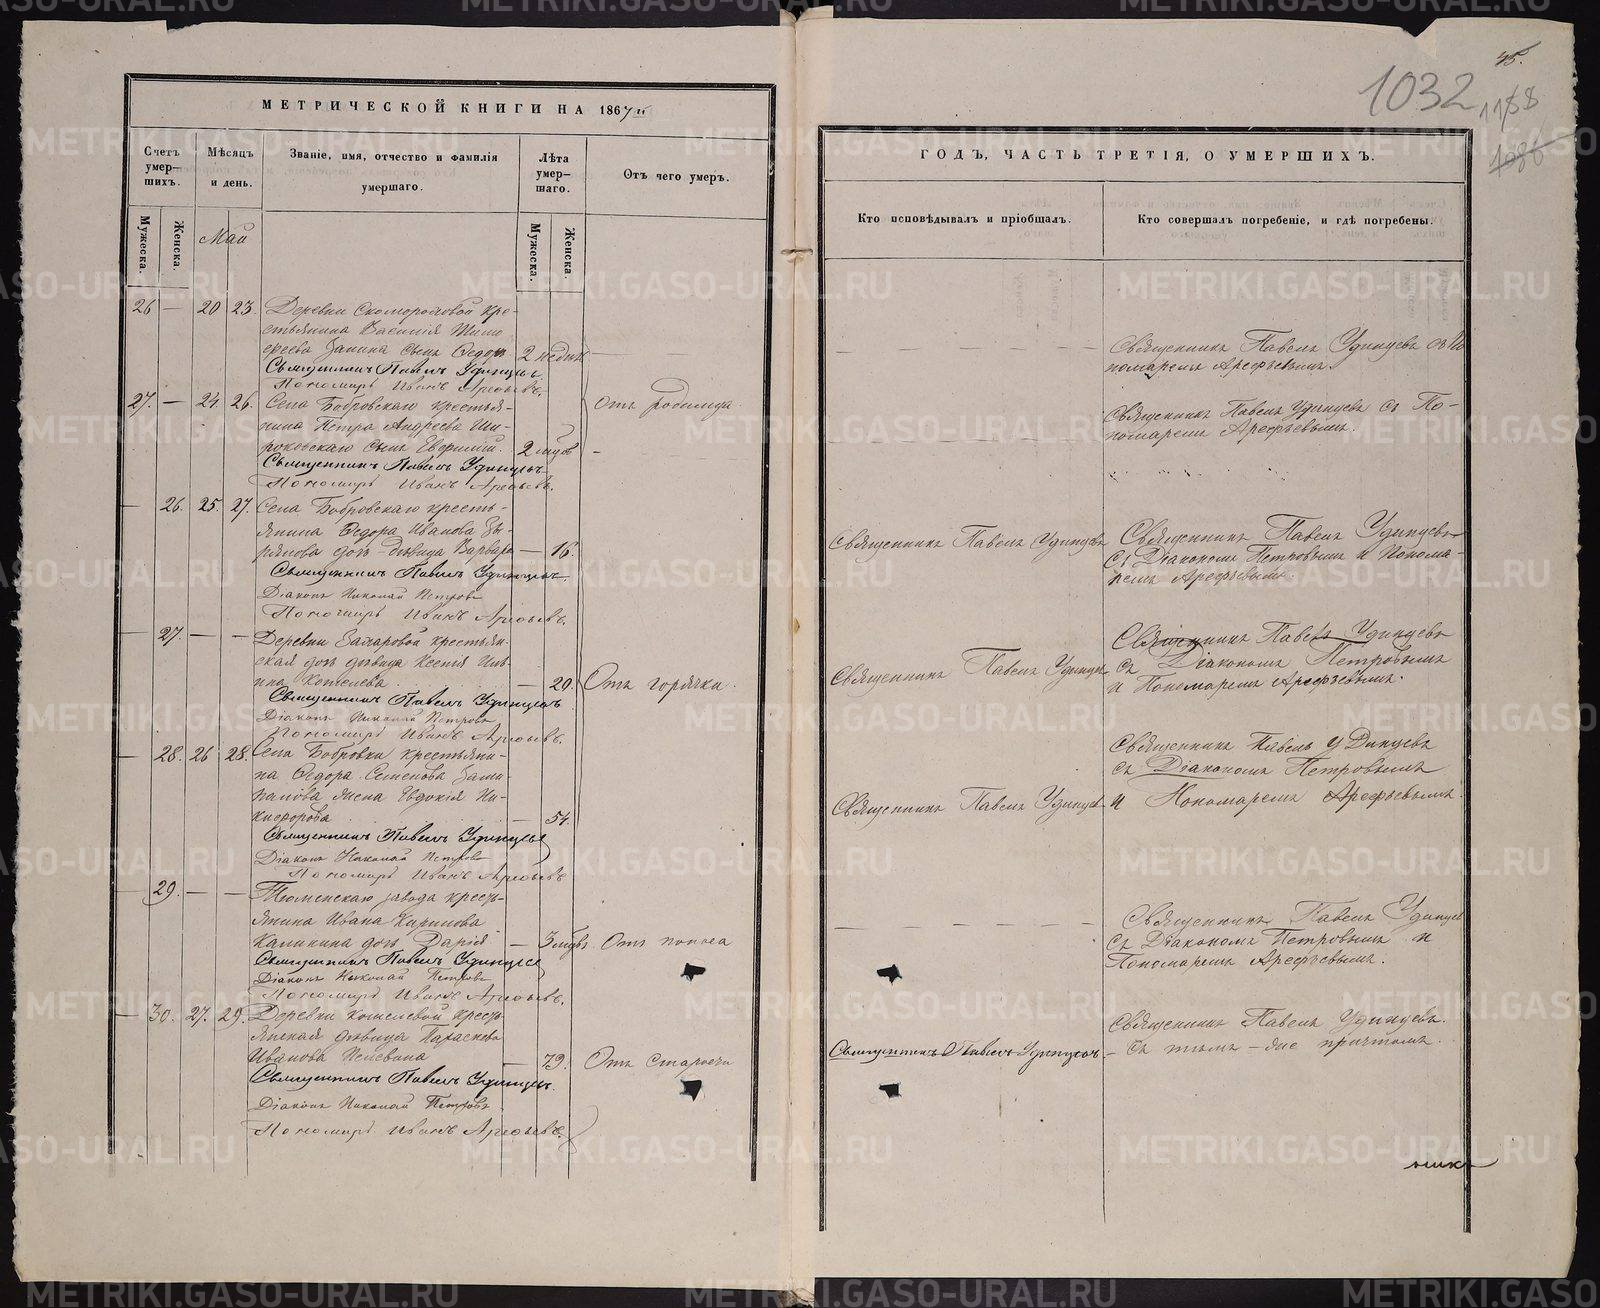 МЕТРИЧЕСКОЙ КНИГИ НА 1867й
Счетъ умер-шихъ.
Мѣсяцъ и день.
Званіе, имя, отчество и фамилія умершаго.
Лѣта умер-шаго.
Отъ чего умеръ.
Мужеска.
Женска.
Май
Мужеска.
Женска.
26 — 20 23. Деревни Скоморохової кре-
стьянина Василія Тимо
феева сынъ Федоръ 2 недѣль
Священникъ Павелъ Удинцевъ
Пономарь Иванъ Арефьевъ.
27. — 24. 26. Села Бобровскаго крестья-
нина Петра Андреева Ши-
роковскаго сынъ Евфимій. 2 мѣсъ
Отъ родимца.
Священникъ Павелъ Удинцевъ
Пономарь Иванъ Арефьевъ.
— 26. 25. 27. Села Бобровскаго кресть-
янина Федора Иванова Зы-
рянова дочь дѣвица Варвара — 16.
Священникъ Павелъ Удинцевъ.
Діаконъ Николай Петровъ
Пономарь Иванъ Арефьевъ.
— 27. — — Деревни крестьян-
ская дочь дѣвица Ксенія
Кошелева — 20. Отъ горячки.
Священникъ Павелъ Удинцевъ
Діаконъ Николай Петровъ
Пономарь Иванъ Арефьевъ.
— 28. 26 28. Села Бобровки крестьяни-
на Федора Семенова
жена Евдокія Ни-
кифорова — 54.
Священникъ Павелъ Удинцевъ
Діаконъ Николай Петровъ
Пономарь Иванъ Арефьевъ
— 29. — — завода кресть-
янина Ивана Кирилова
Калинина дочь Дарія — 3 мѣсъ. Отъ поноса
Священникъ Павелъ Удинцевъ
Діаконъ Николай Петровъ
Пономарь Иванъ Арефьевъ.
— 30. 27. 29. Деревни Кошелевой кресть-
янская дѣвица Параскева
Иванова — 79. Отъ старости
Священникъ Павелъ Удинцевъ.
Діаконъ Николай Петровъ
Пономарь Иванъ Арефьевъ.
45.
1032
1158
1086
ГОДЪ, ЧАСТЬ ТРЕТІЯ, О УМЕРШИХЪ.
Кто исповѣдывалъ и пріобщалъ.
Кто совершалъ погребеніе, и гдѣ погребены.
Священникъ Павелъ Удинцевъ съ По
номаремъ Арефьевымъ.
Священникъ Павелъ Удинцевъ съ По-
номаремъ Арефьевымъ.
Священникъ Павелъ Удинцевъ
Священникъ Павелъ Удинцевъ
съ Діакономъ Петровымъ и Понома-
ремъ Арефьевымъ.
Священникъ Павелъ Удинцевъ
Священникъ Павелъ Удинцевъ
съ Діакономъ Петровымъ
и Пономаремъ Арефьевымъ.
Священникъ Павелъ Удинцевъ
Священникъ Павелъ Удинцевъ
съ Діакономъ Петровымъ
и Пономаремъ Арефьевымъ.
Священникъ Павелъ Удинцевъ
съ Діакономъ Петровымъ и
Пономаремъ Арефьевымъ.
Священникъ Павелъ Удинцевъ
Священникъ Павелъ Удинцевъ.
Съ тѣмъ-же причтомъ.
METRIKI.GASO-URAL.RU